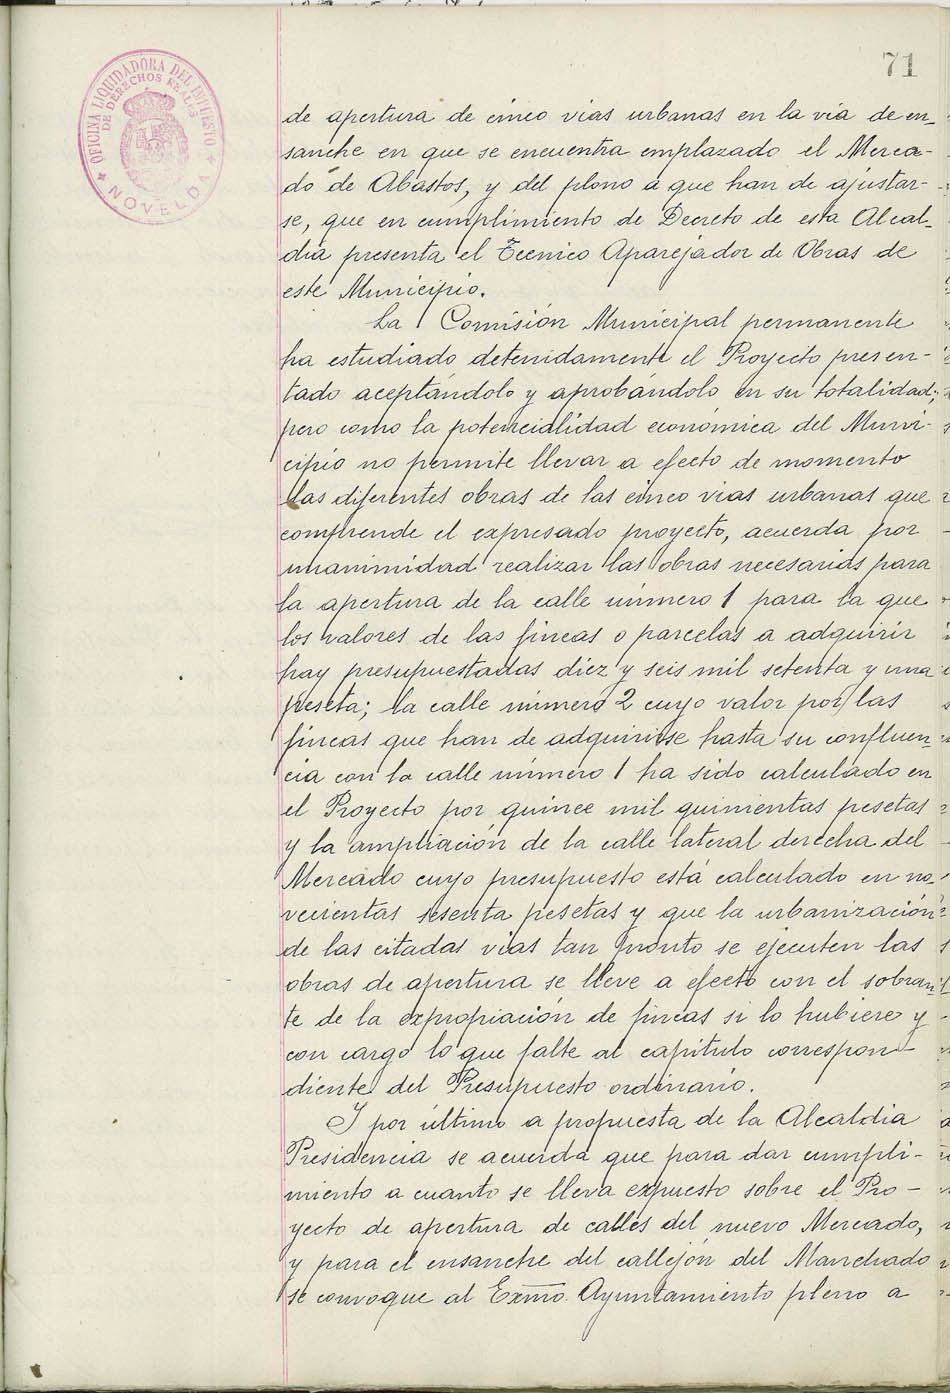 71
OFICINA LIQUIDADORA DEL IMPUESTO
DE DERECHOS REALES
NOVELDA
de apertura de cinco vias urbanas en la via de en-
sanche en que se encuentra emplazado el Merca-
do de Abastos, y del plano a que han de ajustar-
se, que en cumplimiento de Decreto de esta Alcal-
dia presenta el Tecnico Aparejador de Obras de
este Municipio.
La Comisión Municipal permanente
ha estudiado detenidamente el Proyecto presen-
tado aceptándolo y aprobándolo en su totalidad;
pero como la potencialidad económica del Muni-
cipio no permite llevar a efecto de momento
las diferentes obras de las cinco vias urbanas que
comprende el expresado proyecto, acuerda por
unanimidad realizar las obras necesarias para
la apertura de la calle número 1 para la que
los valores de las fincas o parcelas a adquirir
hay presupuestadas diez y seis mil setenta y una
peseta; la calle número 2 cuyo valor por las
fincas que han de adquirirse hasta su confluen-
cia con la calle número 1 ha sido calculado en
el Proyecto por quince mil quinientas pesetas
y la ampliación de la calle lateral derecha del
Mercado cuyo presupuesto está calculado en no-
vecientas sesenta pesetas y que la urbanización
de las citadas vias tan pronto se ejecuten las
obras de apertura se lleve a efecto con el sobran-
te de la expropiación de fincas si lo hubiere y
con cargo lo que falte al capitulo correspon-
diente del Presupuesto ordinario.
Y por último a propuesta de la Alcaldia
Presidencia se acuerda que para dar cumpli-
miento a cuanto se lleva expuesto sobre el Pro-
yecto de apertura de calles del nuevo Mercado,
y para el ensanche del callejón del Manchado
se convoque al Exmo. Ayuntamiento pleno a